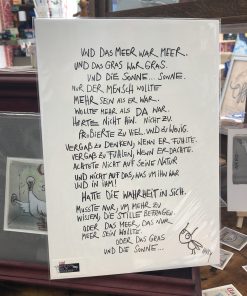 UND DAS MEER WAR MEER..
UND DAS GRAS WAR GRAS.
UND DIE SONNE... SONNE.
NUR DER MENSCH WOLLTE
MEHR SEIN ALS ER WAR..
WOLLTE MEHR ALS DA WAR.
HÖRTE NICHT HIN. NICHT ZU.
PROBIERTE ZU VIEL UND ZU WENIG.
VERGAß ZU DENKEN, WENN ER FÜHLTE.
VERGAß ZU FÜHLEN, WENN ER DACHTE.
ACHTETE NICHT AUF SEINE NATUR
UND NICHT AUF DAS, WAS UM IHN WAR
UND IN IHM!
HATTE DIE WAHRHEIT IN SICH.
MUSSTE NUR, UM MEHR ZU
WISSEN, DIE STILLE BEFRAGEN
ODER DAS MEER, DAS NUR
MEER SEIN WOLLTE.
ODER DAS GRAS
UND DIE SONNE...